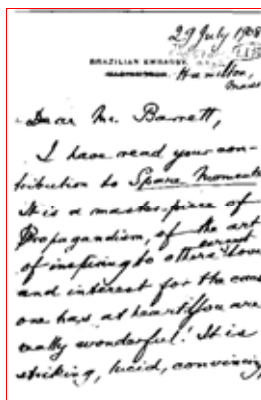 29 July 1908
BRAZILIAN EMBASSY
Hamilton,
Mass
Dear Mr. Barrett,
I have read your con-
tribution to Spare Moments
It is a master-piece of
Propagandism, of the art
of inspiring to others love
and interest for the cause
one has at heart. You are
really wonderful! It is
striking, lucid, convincing,